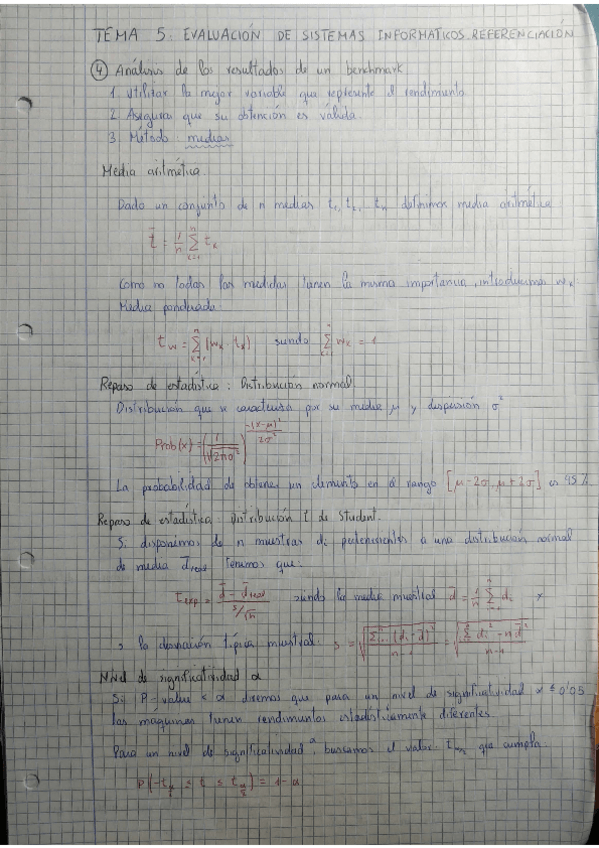 TEMA 5: EVALUACIÓN DE SISTEMAS INFORMATICOS. REFERENCIACIÓN
④ Análisis de los resultados de un benchmark
1. Utilizar la mejor variable que represente el rendimiento
2. Asegurar que su obtención es válida.
3. Método: medias
Media aritmética.
Dado un conjunto de n medidas t₁, t₂, ... tₙ definimos media aritmética
t̄ = 1/n Σ_{k=1}^{n} t_k
Como no todas las medidas tienen la misma importancia, introducimos w_k
Media ponderada:
t_w = Σ_{k=1}^{n} (w_k · t_k) siendo Σ_{k=1}^{n} w_k = 1
Repaso de estadística: Distribución normal
Distribución que se caracteriza por su media μ y dispersión σ²
Prob(x) = (1/√(2πσ²))^{-(x-μ)²/2σ²}
La probabilidad de obtener un elemento en el rango [μ-2σ, μ+2σ] es 95%
Repaso de estadística: Distribución t de Student.
Si disponemos de n muestras di pertenecientes a una distribución normal
de media d̄real tenemos que:
t_exp = (d̄ - d̄real)/(s/√n) siendo la media muestral d̄ = 1/n Σ_{i=1}^{n} di
la desviación típica muestral: s = √(Σ (di - d̄)²/(n-1)) = √((Σ di² - n d̄²)/(n-1))
Nivel de significatividad α
Si P-value < α diremos que para un nivel de significatividad α ≤ 0'05
las maquinas tienen rendimientos estadísticamente diferentes
Para un nivel de significatividad α, buscamos el valor que cumpla
P(-t_{α/2} ≤ t ≤ t_{α/2}) = 1-α